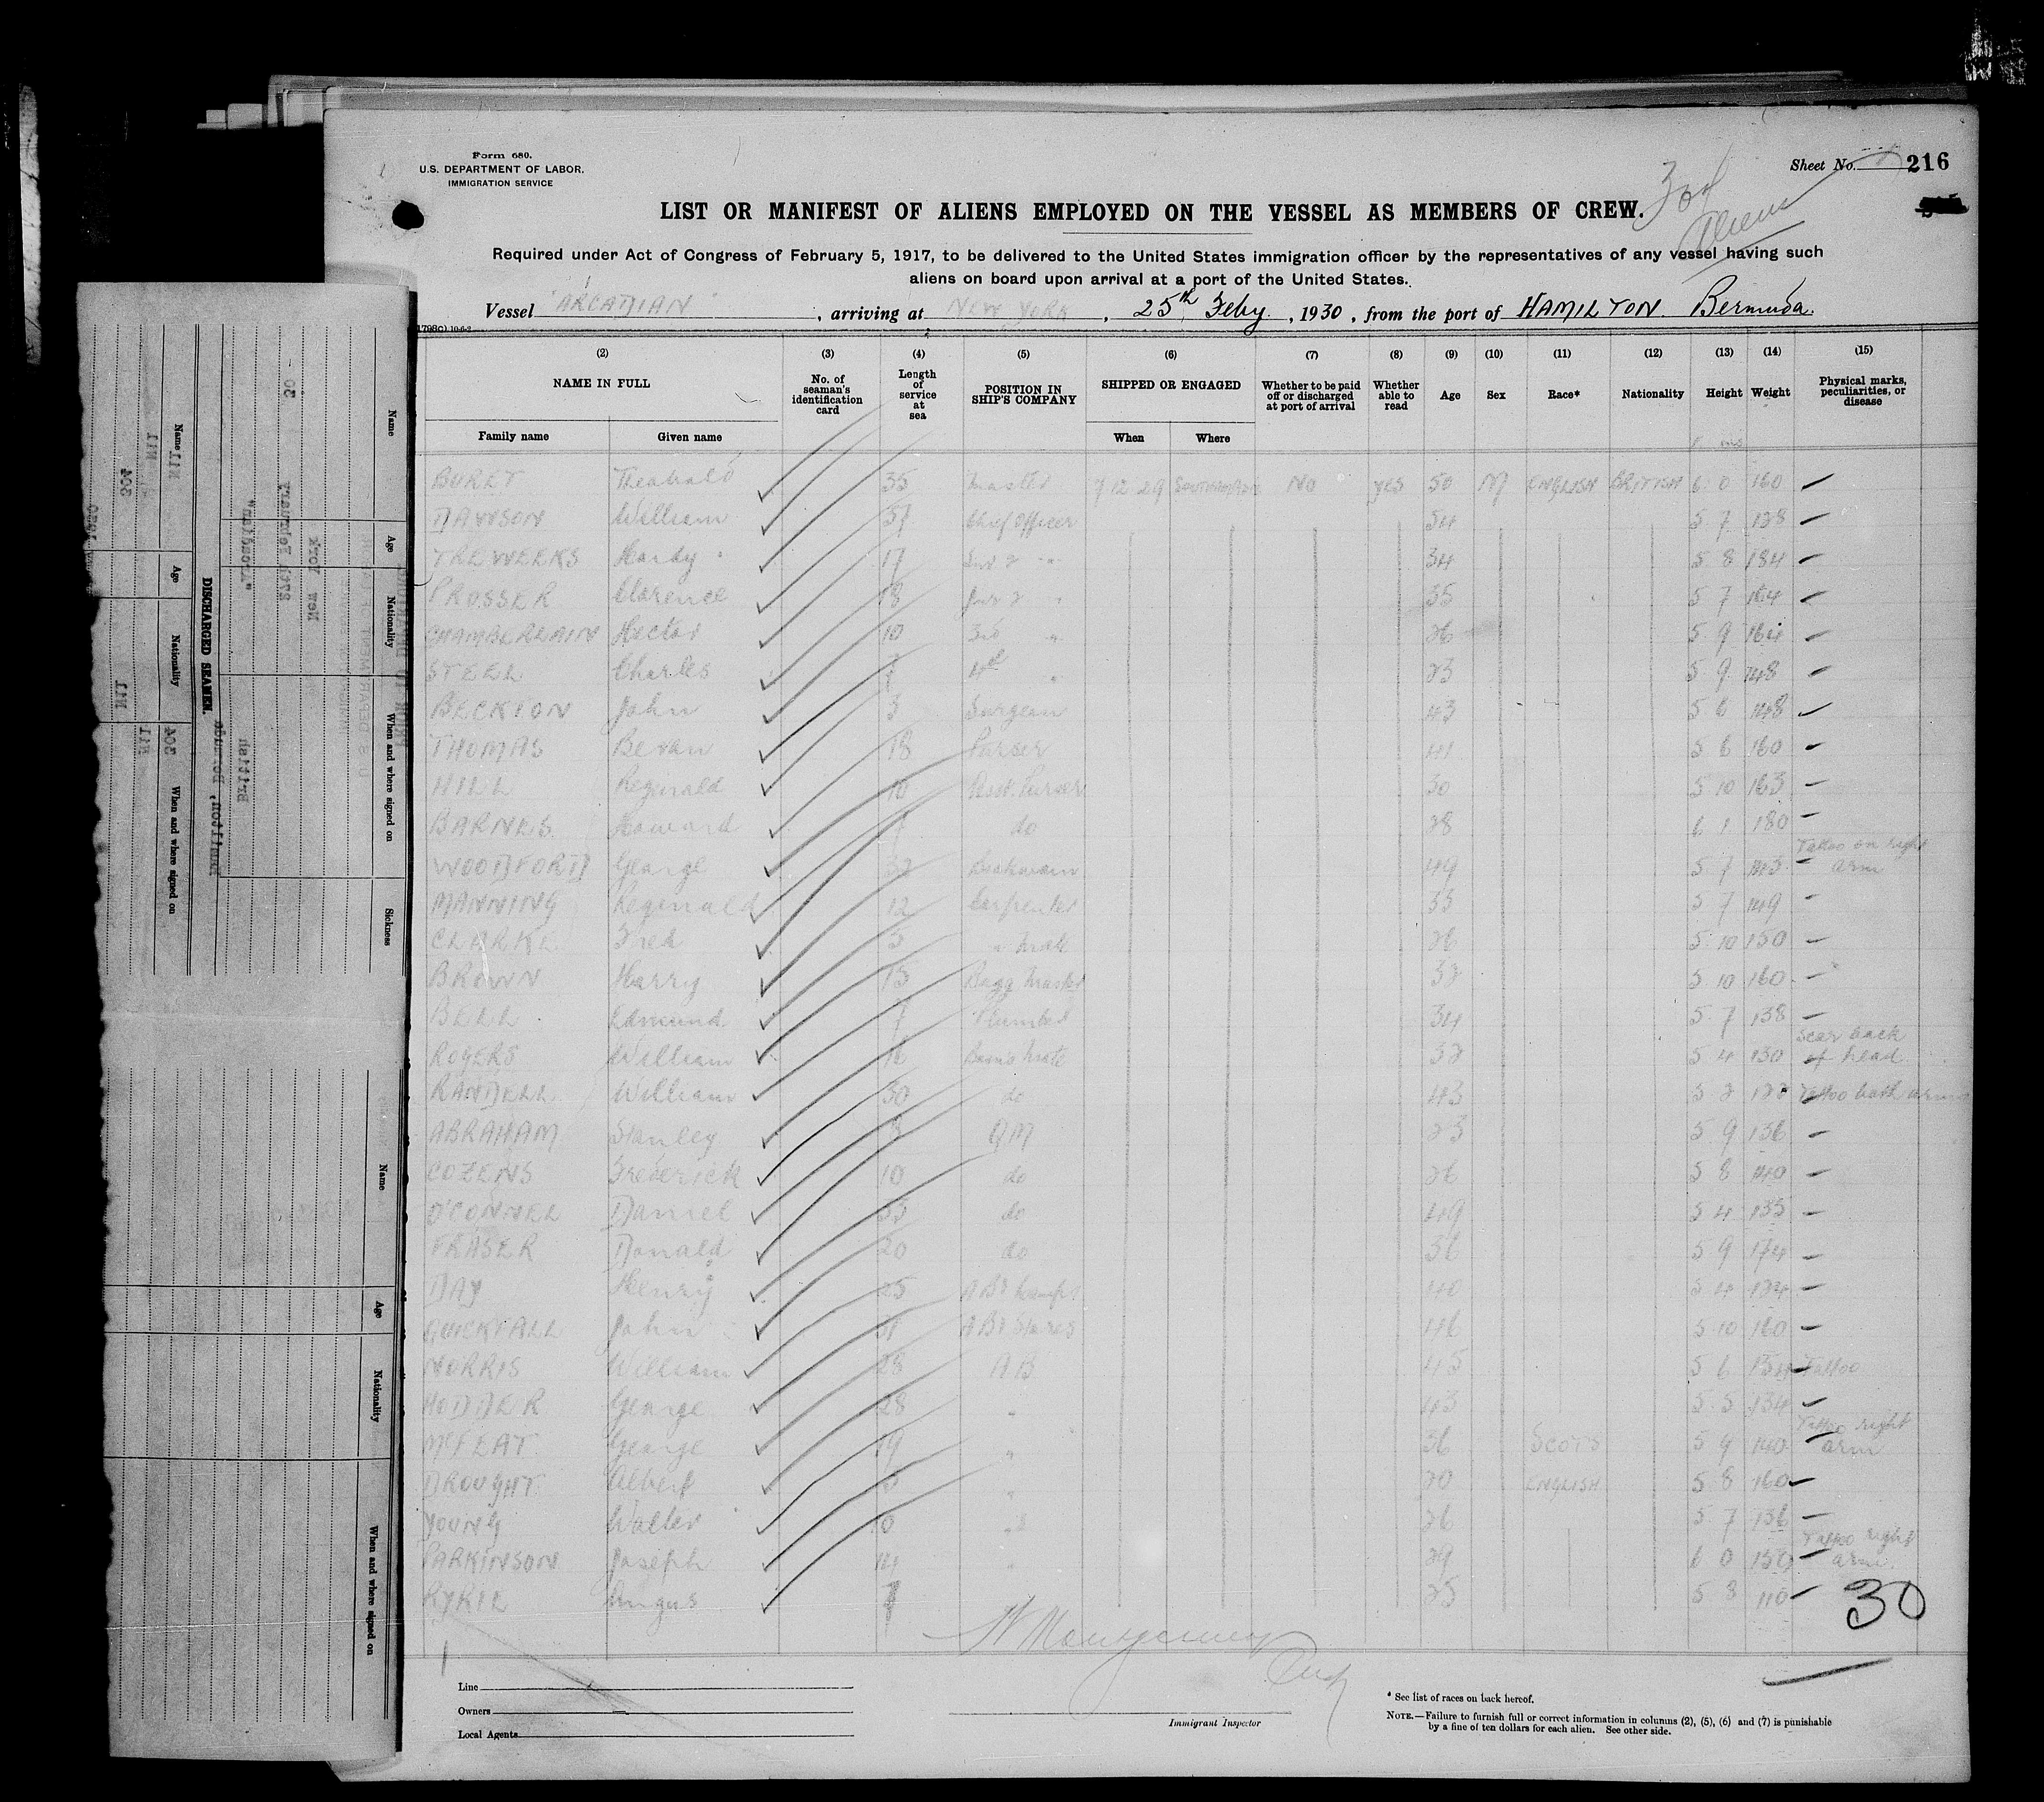 Form 680.
U.S. DEPARTMENT OF LABOR.
IMMIGRATION SERVICE
Sheet No. 216
LIST OR MANIFEST OF ALIENS EMPLOYED ON THE VESSEL AS MEMBERS OF CREW.
Required under Act of Congress of February 5, 1917, to be delivered to the United States immigration officer by the representatives of any vessel having such
aliens on board upon arrival at a port of the United States.
Vessel "ARCADIAN", arriving at NEW YORK, 25th Feby., 1930, from the port of HAMILTON. Bermuda.
(2) (3) (4) (5) (6) (7) (8) (9) (10) (11) (12) (13) (14) (15)
NAME IN FULL No. of seaman's identification card Length of service at sea POSITION IN SHIP'S COMPANY SHIPPED OR ENGAGED Whether to be paid off or discharged at port of arrival Whether able to read Age Sex Race* Nationality Height Weight Physical marks, peculiarities, or disease
Family name Given name When Where
BURET Theobald 35 Master 7 12 29 SOUTHAMPTON No yes 50 M ENGLISH BRITISH 6 0 160
DAWSON William 37 Chief Officer 54 5 7 138
TREWEEKS Hardy 17 34 5 8 184
PROSSER Clarence 18 35 5 7 164
CHAMBERLAIN Hector 10 3rd " 26 5 9 164
STEEL Charles 7 4th " 23 5 9 148
BECKTON John 3 Surgeon 43 5 6 148
THOMAS Bevan 18 Purser 41 5 6 160
HILL Reginald 10 Asst. Purser 30 5 10 163
BARNES Howard 7 do 28 6 1 180
WOODFORD George 32 Boatswain 49 5 7 143 Tattoo on right arm
MANNING Reginald 12 Carpenter 33 5 7 149
CLARKE Fred 5 " Mate 26 5 10 150
BROWN Harry 15 Bagg Master 32 5 10 160
BELL Edmund 7 Plumber 34 5 7 138
ROGERS William 16 Bosns Mate 32 5 4 130 Scar back of head
RANDELL William 30 do 43 5 2 122 Tattoo both arms
ABRAHAM Stanley 8 QM 23 5 9 136
COZENS Frederick 10 do 26 5 8 140
O'CONNEL Daniel 33 do 49 5 4 133
FRASER Donald 20 do 36 5 9 174
DAY Henry 25 40 5 4 134
QUICKFALL John 31 AB & Stores 46 5 10 160
NORRIS William 28 AB 45 5 6 Tattoo
HODDER George 28 " 43 5 5 134
McFEAT George 19 " 36 SCOTS 5 9 140 Tattoo right arm
DROUGHT Albert 3 " 20 ENGLISH 5 8 160
YOUNG Walter 10 " 26 5 7 136
PARKINSON Joseph 14 " 29 6 0 150 Tattoo right arm
Angus 25 5 8 110
30
Line
Owners
Local Agents
Immigrant Inspector
* See list of races on back hereof.
NOTE.—Failure to furnish full or correct information in columns (2), (5), (6) and (7) is punishable
by a fine of ten dollars for each alien. See other side.
Name Age Nationality When and where signed on Sickness
DISCHARGED SEAMEN.
Name Age Nationality When and where signed on
Name Age Nationality When and where signed on